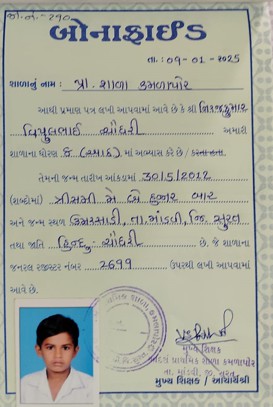 જા.નં.-૨૧૦
બોનાફાઈડ
તા. : ૦૧-૦૧-2025
શાળાનું નામ : પ્રા. શાળા કમળાપોર
આથી પ્રમાણ પત્ર લખી આપવામાં આવે છે કે શ્રી નિરજકુમાર
વિપુલભાઈ ચૌધરી અમારી
શાળાના ધોરણ ૭ (સાત) માં અભ્યાસ કરે છે /
તેમની જન્મ તારીખ આંકડામાં 30/5/2012
(શબ્દોમાં) ત્રીસમી મે બે હજાર બાર
અને જન્મ સ્થળ ઉમરસાડી, તા.માંડવી, જિ. સુરત
તથા જાતિ હિન્દુ- ચૌધરી છે. જે શાળાના
જનરલ રજીસ્ટર નંબર 2699 ઉપરથી લખી આપવામાં
આવે છે.
મુખ્ય શિક્ષક
પ્રાથમિક શાળા કમળાપોર
તા. માંડવી, જી. સુરત
મુખ્ય શિક્ષક / આચાર્યશ્રી